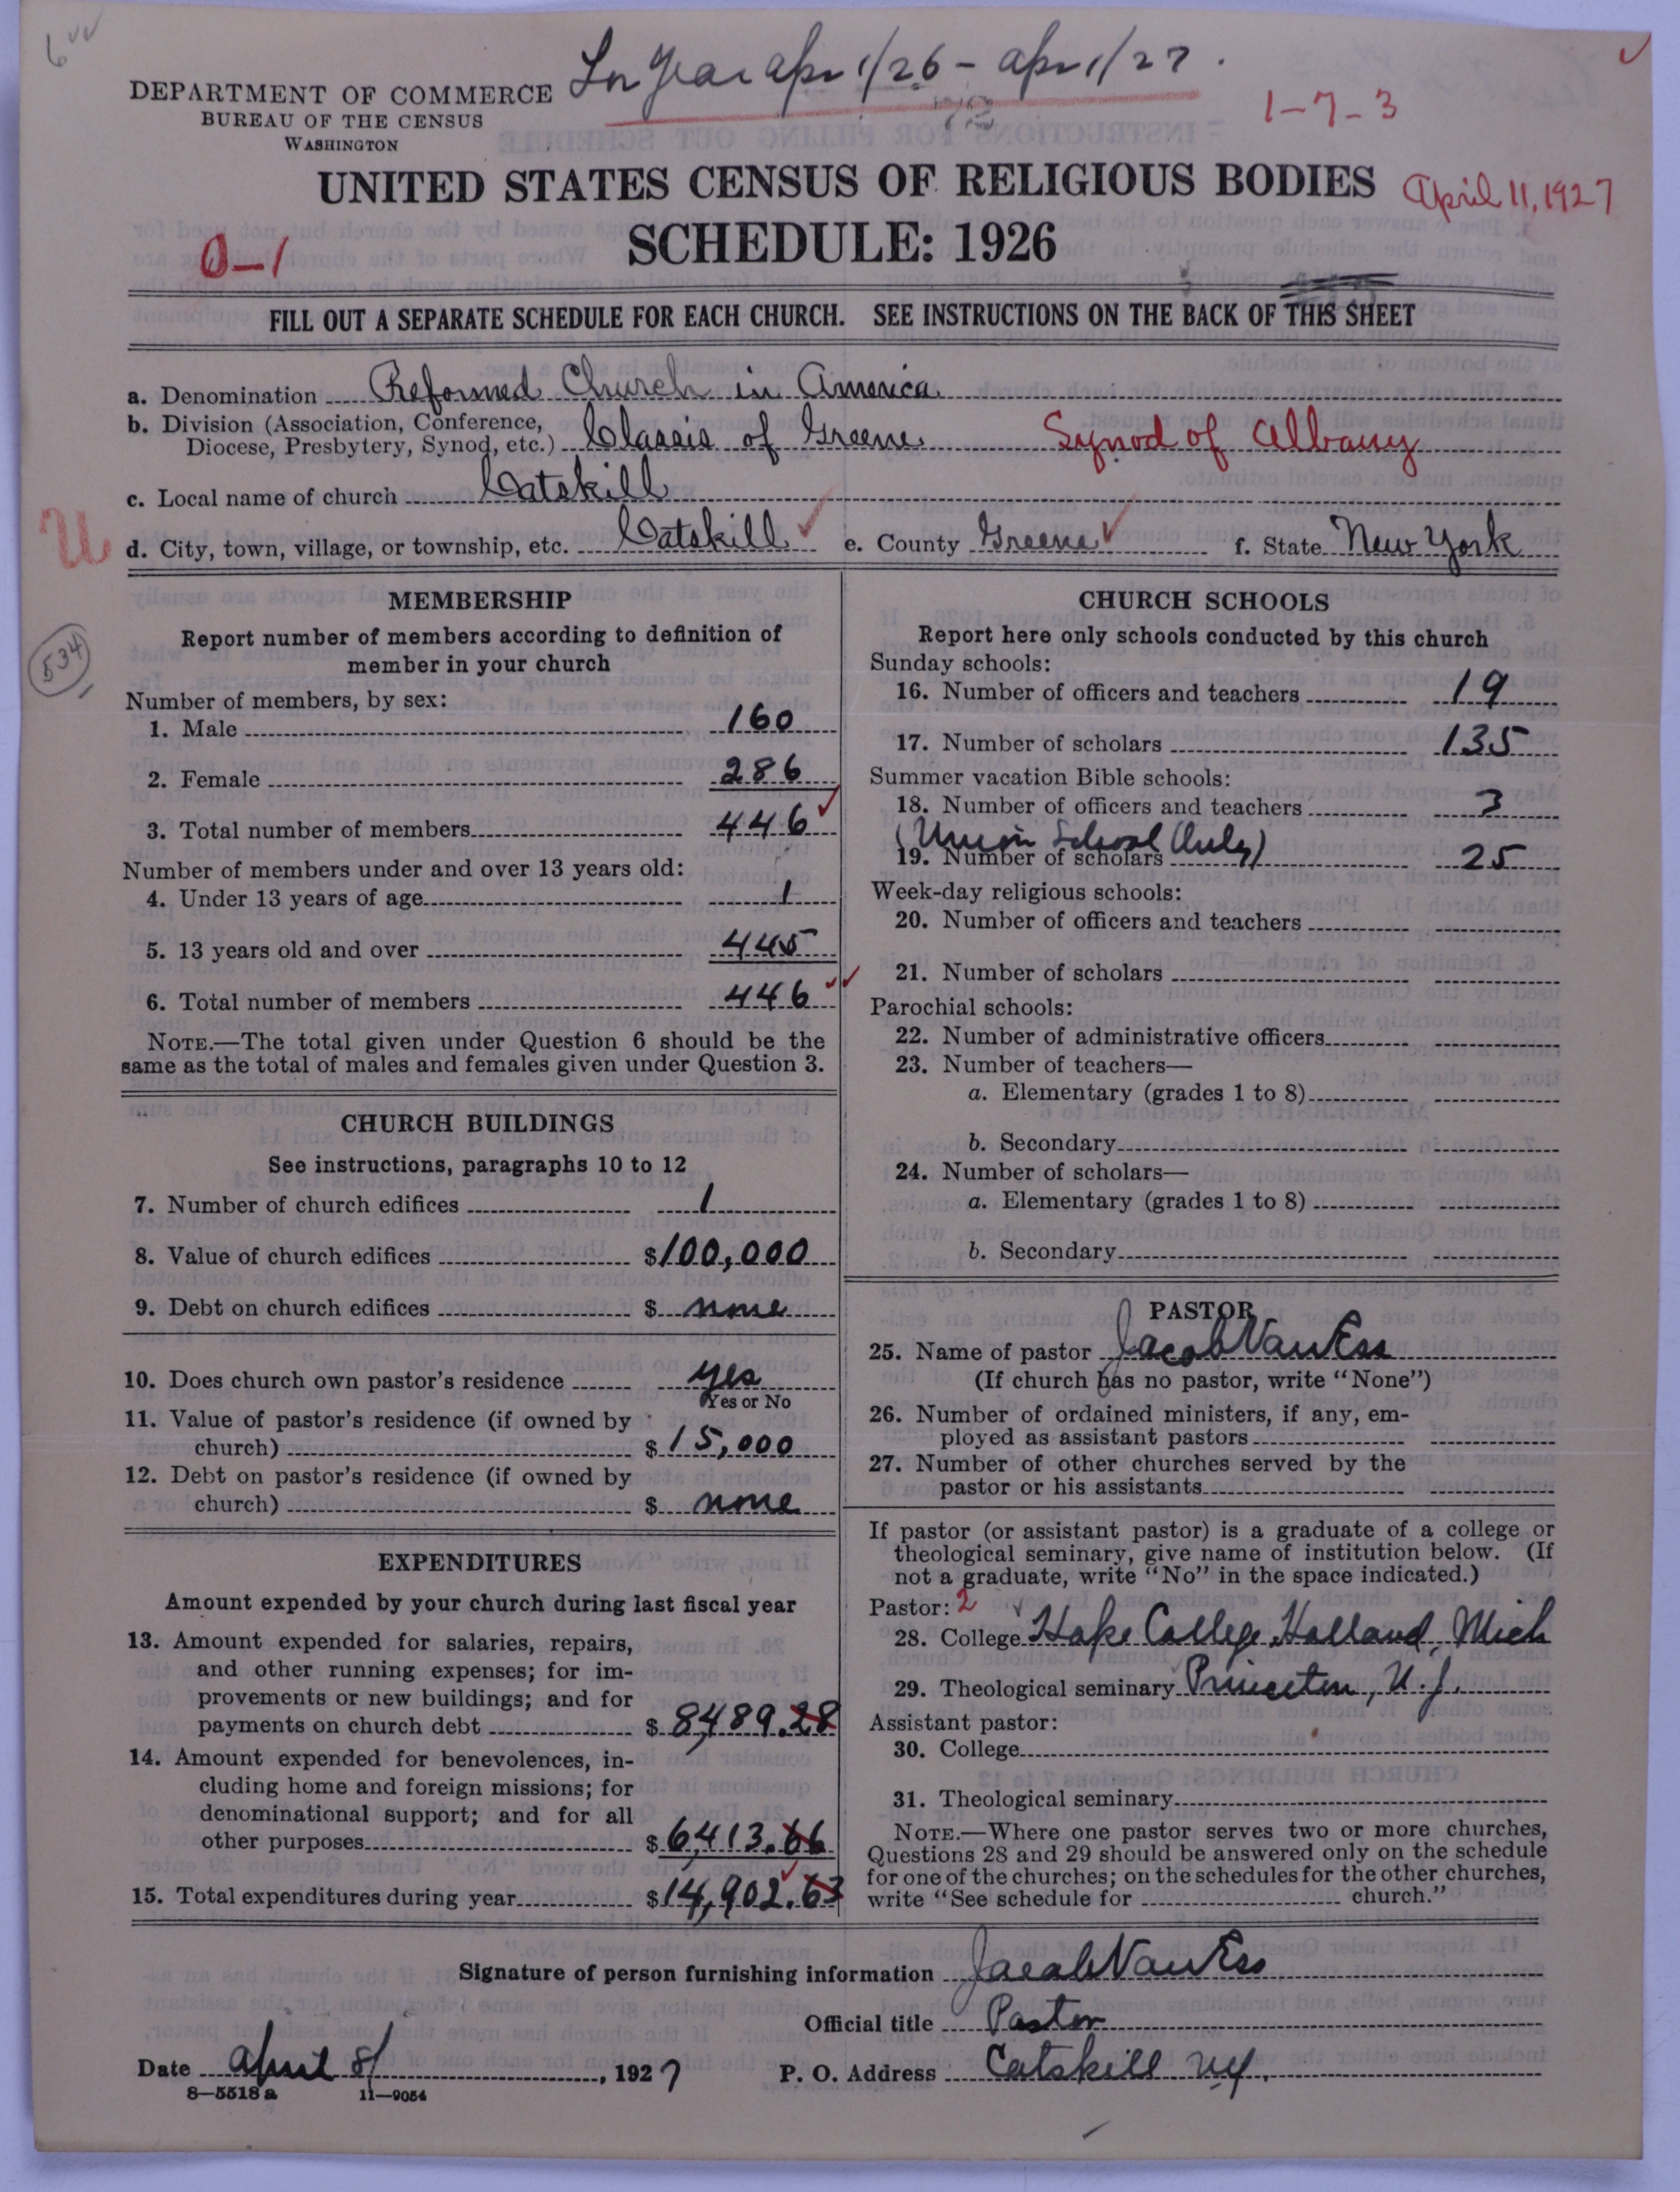 6
For Year Apr 1/26 - Apr 1/27.
DEPARTMENT OF COMMERCE
BUREAU OF THE CENSUS
WASHINGTON
1-7-3
UNITED STATES CENSUS OF RELIGIOUS BODIES
April 11, 1927
SCHEDULE: 1926
0-1
FILL OUT A SEPARATE SCHEDULE FOR EACH CHURCH. SEE INSTRUCTIONS ON THE BACK OF THIS SHEET
a. Denomination Reformed Church in America
b. Division (Association, Conference,
Diocese, Presbytery, Synod, etc.) Classis of Greene Synod of Albany
c. Local name of church Catskill
U
d. City, town, village, or township, etc. Catskill e. County Greene f. State New York
MEMBERSHIP
Report number of members according to definition of
member in your church
534
Number of members, by sex:
1. Male 160
2. Female 286
3. Total number of members 446
Number of members under and over 13 years old:
4. Under 13 years of age 1
5. 13 years old and over 445
6. Total number of members 446
NOTE.—The total given under Question 6 should be the
same as the total of males and females given under Question 3.
CHURCH BUILDINGS
See instructions, paragraphs 10 to 12
7. Number of church edifices 1
8. Value of church edifices $100,000
9. Debt on church edifices $ none
10. Does church own pastor's residence yes
Yes or No
11. Value of pastor's residence (if owned by
church) $15,000
12. Debt on pastor's residence (if owned by
church) $ none
EXPENDITURES
Amount expended by your church during last fiscal year
13. Amount expended for salaries, repairs,
and other running expenses; for im-
provements or new buildings; and for
payments on church debt $8,489.28
14. Amount expended for benevolences, in-
cluding home and foreign missions; for
denominational support; and for all
other purposes $6,413.66
15. Total expenditures during year $14,902.63
CHURCH SCHOOLS
Report here only schools conducted by this church
Sunday schools:
16. Number of officers and teachers 19
17. Number of scholars 135
Summer vacation Bible schools:
18. Number of officers and teachers 3
(Union School Only)
19. Number of scholars 25
Week-day religious schools:
20. Number of officers and teachers
21. Number of scholars
Parochial schools:
22. Number of administrative officers
23. Number of teachers—
a. Elementary (grades 1 to 8)
b. Secondary
24. Number of scholars—
a. Elementary (grades 1 to 8)
b. Secondary
PASTOR
25. Name of pastor Jacob Van Ess
(If church has no pastor, write "None")
26. Number of ordained ministers, if any, em-
ployed as assistant pastors
27. Number of other churches served by the
pastor or his assistants
If pastor (or assistant pastor) is a graduate of a college or
theological seminary, give name of institution below. (If
not a graduate, write "No" in the space indicated.)
Pastor: 2
28. College Hope College, Holland, Mich
29. Theological seminary Princeton, N.J.
Assistant pastor:
30. College
31. Theological seminary
NOTE.—Where one pastor serves two or more churches,
Questions 28 and 29 should be answered only on the schedule
for one of the churches; on the schedules for the other churches,
write "See schedule for church."
Signature of person furnishing information Jacob Van Ess
Official title Pastor
Date April 8/, 1927 P. O. Address Catskill N.Y.
8—5518 a 11—9054